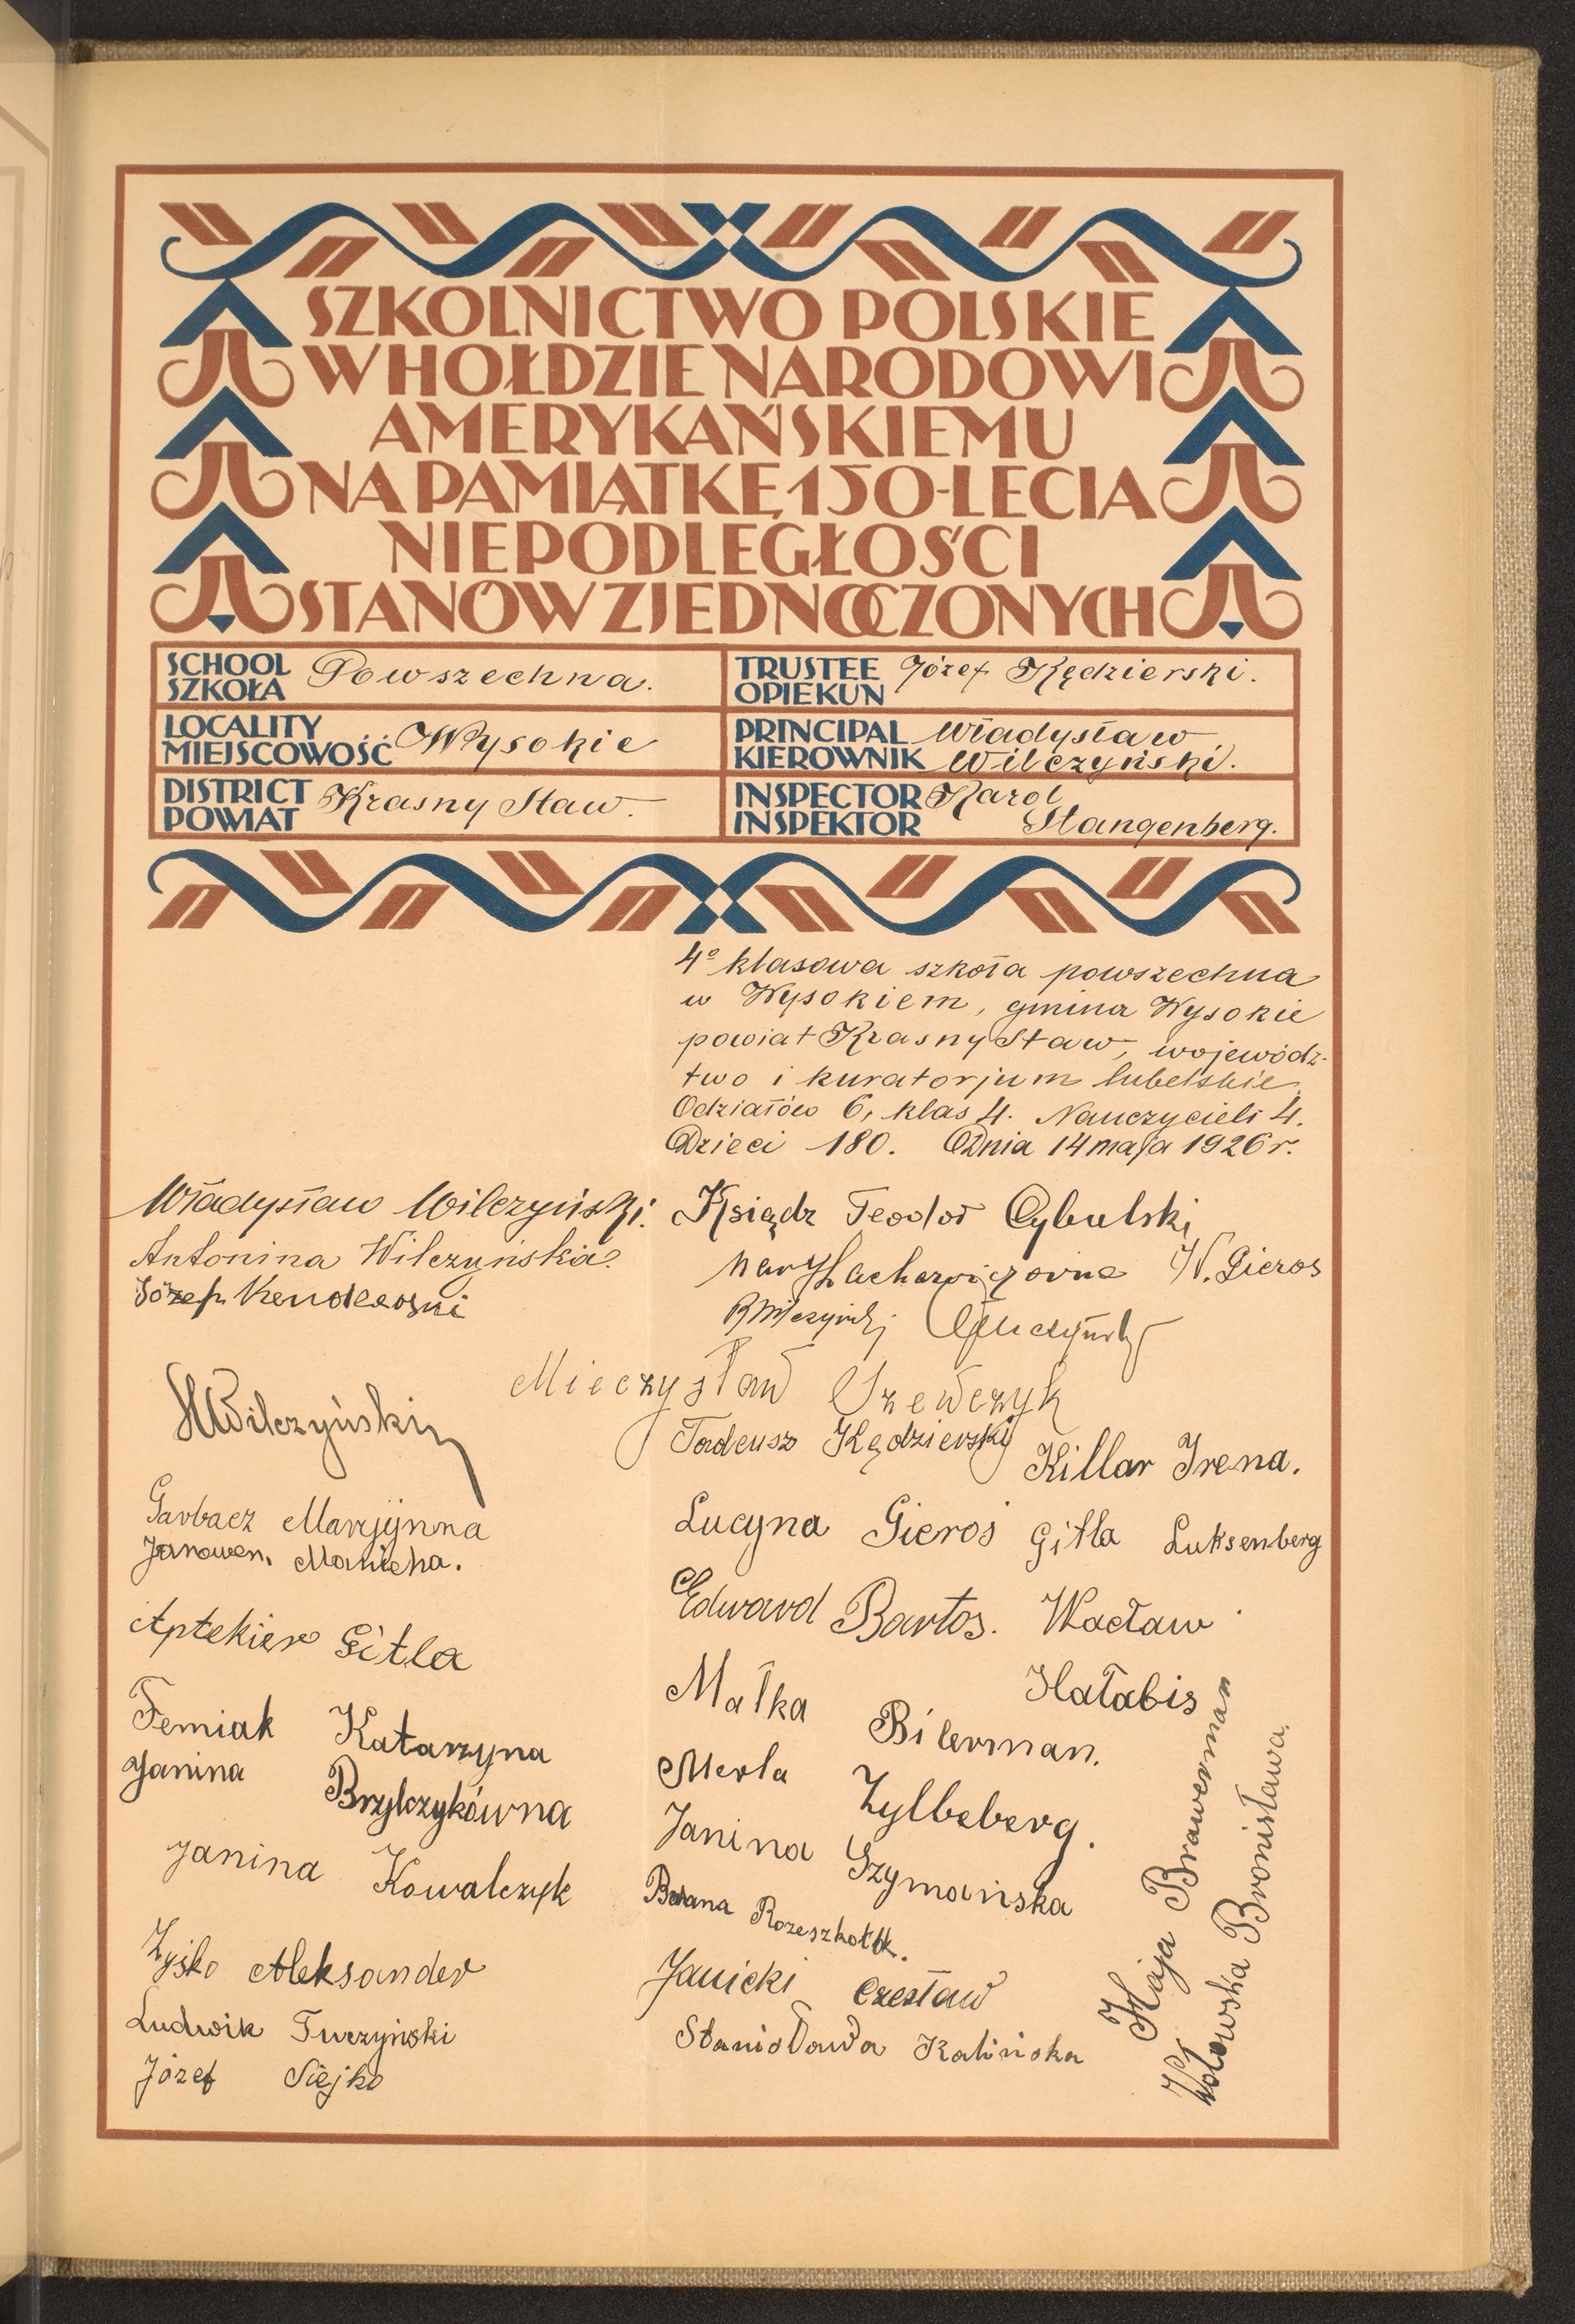 SZKOLNICTWO POLSKIE
W HOŁDZIE NARODOWI
AMERYKAŃSKIEMU
NA PAMIĄTKĘ 150-LECIA
NIEPODLEGŁOŚCI
STANÓW ZJEDNOCZONYCH
SCHOOL
SZKOŁA
Powszechna.
TRUSTEE
OPIEKUN
Józef Kędzierski.
LOCALITY
MIEJSCOWOŚĆ
Wysokie
PRINCIPAL
KIEROWNIK
Władysław
Wilczyński.
DISTRICT
POWIAT
Krasny Staw.
INSPECTOR
INSPEKTOR
Karol
Stangenberg.
4º klasowa szkoła powszechna
w Wysokiem, gmina Wysokie
powiat Krasny Staw, wojewódz-
two i kuratorjum lubelskie
Odziałów 6, klas 4. Nauczycieli 4.
Dzieci 180. Dnia 14 maja 1926 r.
Władysław Wilczyński.
Antonina Wilczyńska.
Józef
Wilczyński
Garbacz Marjynna
Manicha.
Aptekier Gitla
Femiak Katarzyna
Janina Brylczykówna
Janina Kowalczyk
Zyśko Aleksander
Ludwik Turczyński
Józef Siejko
Ksiądz Teodor Cybulski
W. Gieros
Mieczysław Szewczyk
Tadeusz Kędzierski
Killar Irena.
Lucyna Gieroś
Gitla Luksenberg
Edward Bartos.
Wacław
Hałabis
Małka Bilerman.
Merla Zylbeberg.
Janina Szymańska
Janicki Czesław
Stanisława Kalińska
Haja Brawerman
Bronisława.